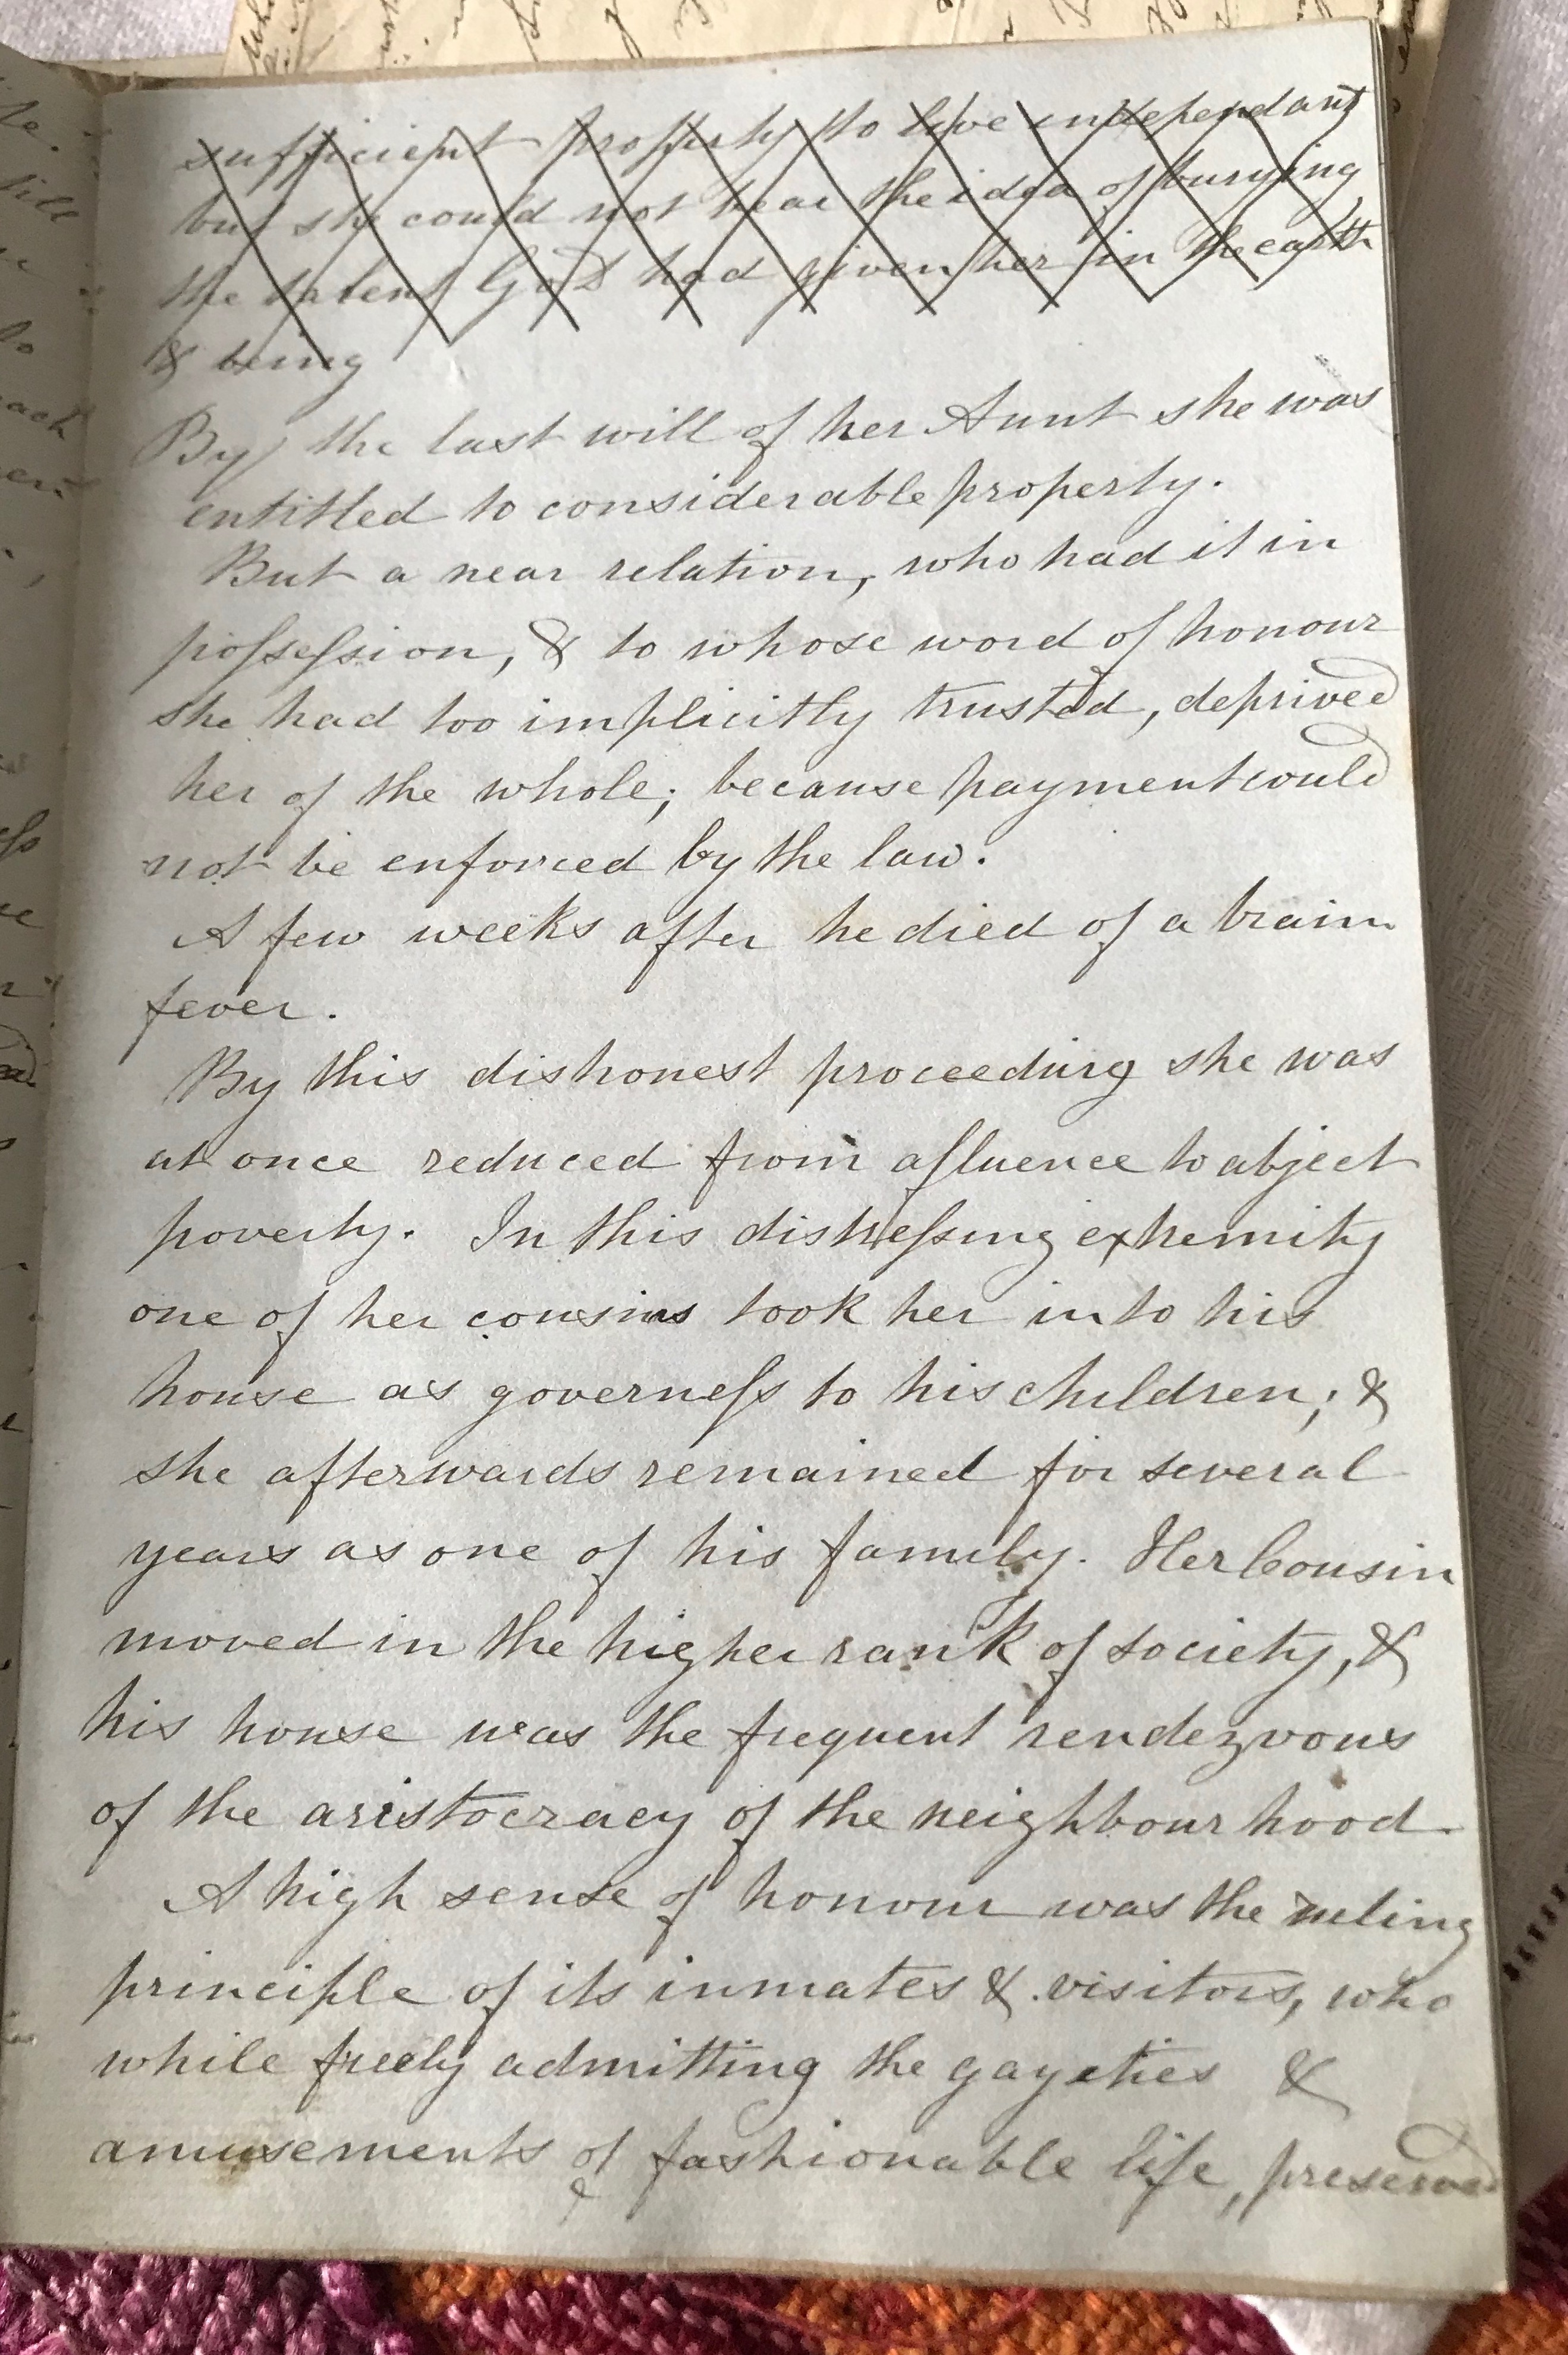 sufficient property to live independant
but she could not bear the idea of burying
the talent God had given her in the earth
& being
By the last will of her Aunt she was
entitled to considerable property.
But a near relation, who had it in
possession, & to whose word of honour
she had too implicitly trusted, deprived
her of the whole; because payment could
not be enforced by the law.
A few weeks after he died of a brain
fever.
By this dishonest proceeding she was
at once reduced from afluence to abject
poverty. In this distressing extremity
one of her cousins took her into his
house as governess to his children; &
she afterwards remained for several
years as one of his family. Her Cousin
moved in the higher rank of society, &
his house was the frequent rendezvous
of the aristocracy of the neighbourhood.
A high sense of honour was the ruling
principle of its inmates & visitors, who
while freely admitting the gayeties &
amusements of fashionable life, preserved